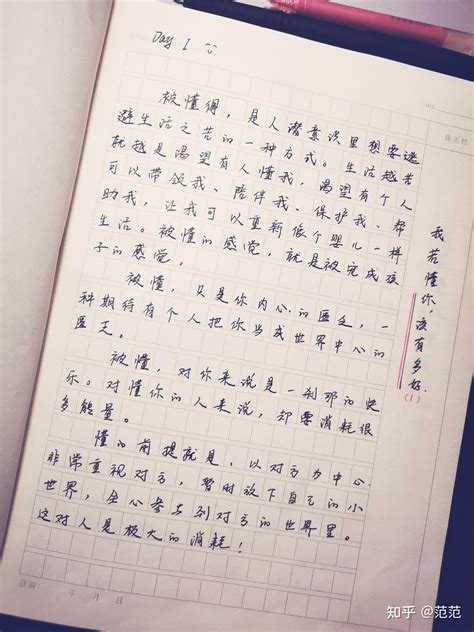 Day 1
被懂得，是人潜意识里想要逃
避生活之苦的一种方式。生活越苦
就越是渴望有人懂我，渴望有个人
可以带领我、陪伴我、保护我、帮
助我，让我可以重新像个婴儿一样
生活。被懂的感觉，就是被完成孩
子的感觉。
被懂，只是你内心的匮乏，一
种期待有个人把你当成世界中心的
匮乏。
被懂，对你来说是一刹那的快
乐。对懂你的人来说，却要消耗很
多能量。
懂的前提就是，以对方为中心
非常重视对方，暂时放下自己的小
世界，全心参与到对方的世界里。
这对人是极大的消耗！
我若懂你，该有多好
(1)
年 月 日
知乎 @范范